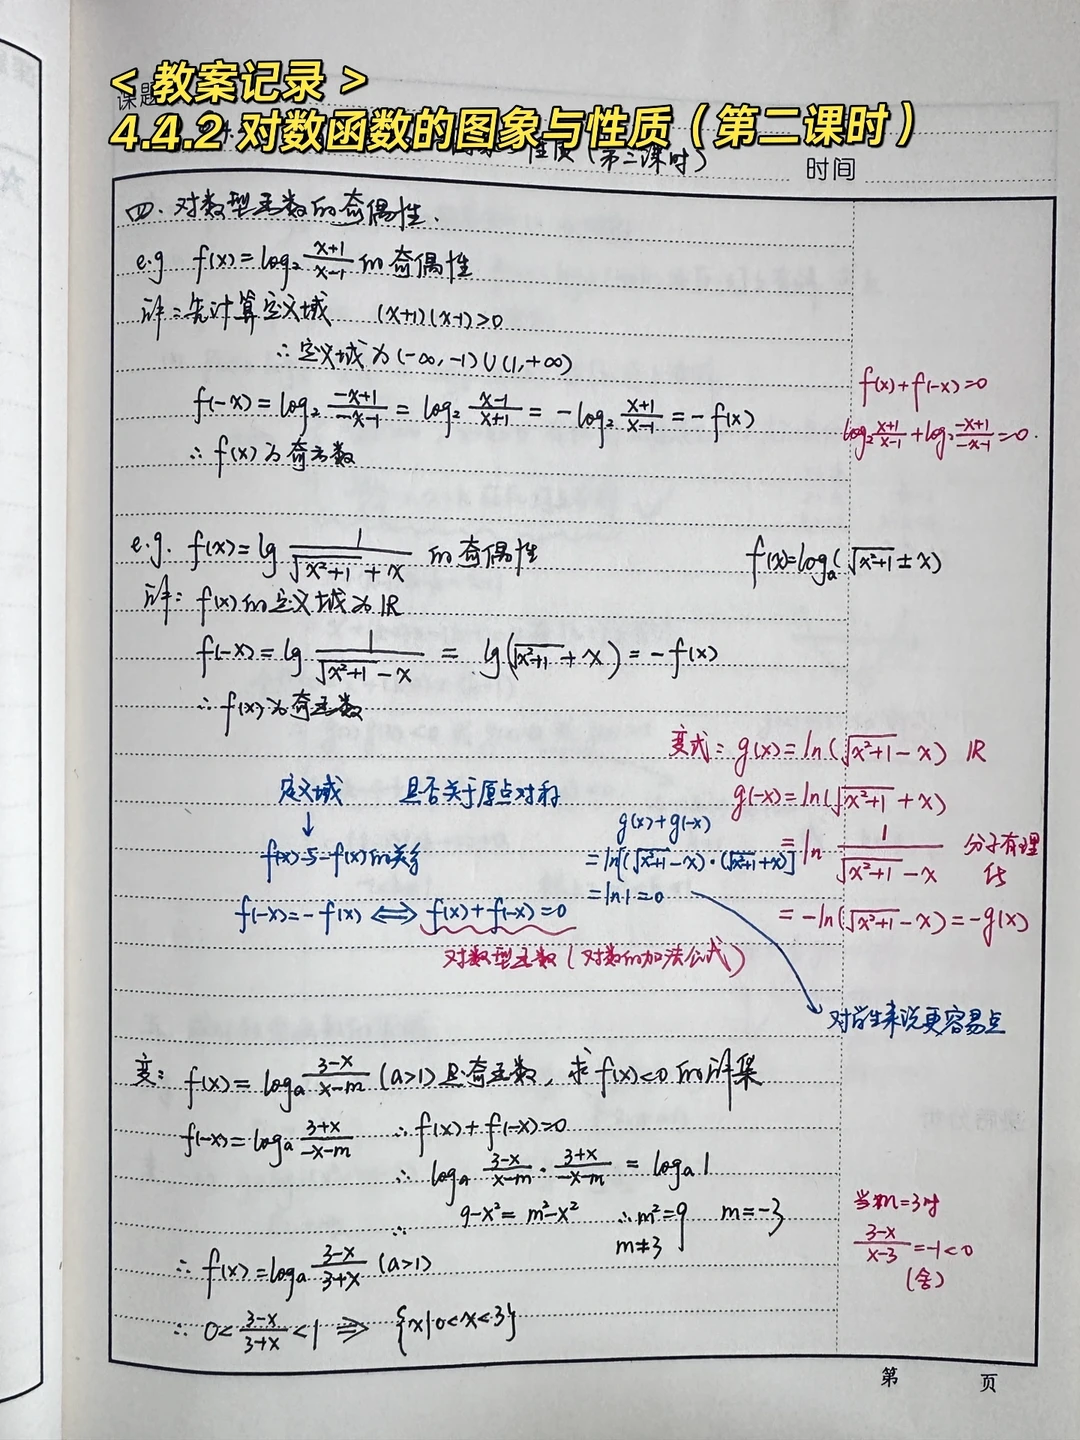 < 教案记录 >
4.4.2 对数函数的图象与性质（第二课时）
课题
性质（第二课时）
时间
四、对数型函数的奇偶性.
e.g f(x)=log₂ (x+1)/(x-1) 的奇偶性
解：先计算定义域 (x+1)(x-1)>0
∴定义域为(-∞,-1)∪(1,+∞)
f(-x)=log₂ (-x+1)/(-x-1) = log₂ (x-1)/(x+1) = -log₂ (x+1)/(x-1) = -f(x)
∴ f(x)为奇函数
f(x)+f(-x)=0
log₂ (x+1)/(x-1) + log₂ (-x+1)/(-x-1) =0.
e.g. f(x)=lg 1/(√(x²+1)+x) 的奇偶性
f(x)=logₐ(√(x²+1)±x)
解：f(x)的定义域为R
f(-x)=lg 1/(√(x²+1)-x) = lg(√(x²+1)+x)=-f(x)
∴ f(x)为奇函数
变式：g(x)=ln(√(x²+1)-x) R
g(-x)=ln(√(x²+1)+x)
=ln 1/(√(x²+1)-x) 分子有理化
=-ln(√(x²+1)-x)=-g(x)
定义域 是否关于原点对称
↓
f(x)与-f(x)的关系
f(-x)=-f(x)⇔f(x)+f(-x)=0
对数型函数（对数的加法公式）
g(x)+g(-x)
=ln[(√(x²+1)-x)·(√(x²+1)+x)]
=ln1=0
对学生来说更容易点
变：f(x)=logₐ (3-x)/(x-m) (a>1)是奇函数，求f(x)<0的解集
f(-x)=logₐ (3+x)/(-x-m) ∴f(x)+f(-x)=0
∴ logₐ (3-x)/(x-m)·(3+x)/(-x-m) = logₐ1
∴ 9-x²=m²-x² ∴m²=9 m=-3
m≠3
当m=3时
(3-x)/(x-3)=-1<0
(舍)
∴ f(x)=logₐ (3-x)/(3+x) (a>1)
∴ 0<(3-x)/(3+x)<1 ⇒ {x|0<x<3}
第 页